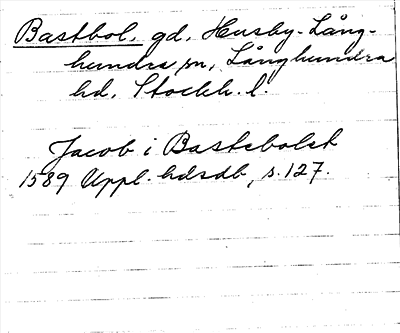 Bastbol, gd, Husby-Lång-
hundra sn, Långhundra
hd, Stockh. l.
Jacob i Bastebolet
1589 Uppl. hdsdb, s. 127.